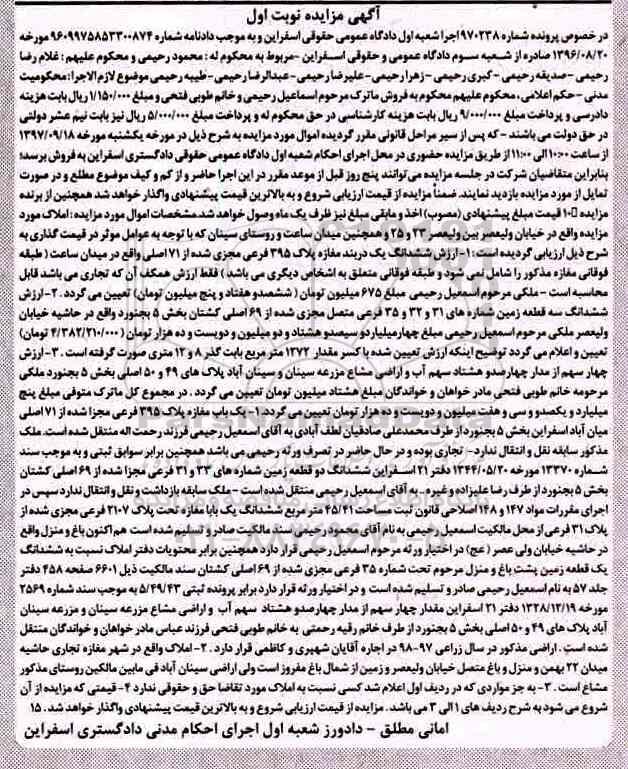 آگهی مزایده نوبت اول
در خصوص پرونده شماره ۹۷۰۲۳۸ اجرا شعبه اول دادگاه عمومی حقوقی اسفراین و به موجب دادنامه شماره ۹۶۰۹۹۷۵۸۵۳۳۰۰۸۷۴ مورخه
۱۳۹۶/۰۸/۲۰ صادره از شعبه سوم دادگاه عمومی و حقوقی اسفراین -مربوط به محکوم له : محمود رحیمی و محکوم علیهم : غلام رضا
رحیمی -صدیقه رحیمی -کبری رحیمی -زهرا رحیمی -علیرضا رحیمی -عبدالرضا رحیمی -طیبه رحیمی موضوع لازم الاجرا : محکومیت
مدنی -حکم اعلامی ، محکوم علیهم محکوم به فروش ماترک مرحوم اسماعیل رحیمی و خانم طوبی فتحی و مبلغ ۱/۱۵۰/۰۰۰ ریال بابت هزینه
دادرسی و پرداخت مبلغ ۹/۰۰۰/۰۰۰ ریال بابت هزینه کارشناسی در حق محکوم له و پرداخت مبلغ ۵/۰۰۰/۰۰۰ ریال نیز بابت نیم عشر دولتی
در حق دولت می باشند - که پس از سیر مراحل قانونی مقرر گردیده اموال مورد مزایده به شرح ذیل در مورخه یکشنبه مورخه ۱۳۹۷/۰۹/۱۸
از ساعت ۱۰:۰۰ الی ۱۱:۰۰ از طریق مزایده حضوری در محل اجرای احکام شعبه اول دادگاه عمومی حقوقی دادگستری اسفراین به فروش برسد؛
بنابراین متقاضیان شرکت در جلسه مزایده می توانند پنج روز قبل از موعد مقرر در این اجرا حاضر و از کم و کیف موضوع مطلع و در صورت
تمایل از مورد مزایده بازدید نمایند. ضمناً مزایده از قیمت ارزیابی شروع و به بالاترین قیمت پیشنهادی واگذار خواهد شد همچنین از برنده
مزایده ۱۰٪ قیمت مبلغ پیشنهادی (مصوب) اخذ و مابقی مبلغ نیز ظرف یک ماه وصول خواهد شد.مشخصات اموال مورد مزایده : املاک مورد
مزایده واقع در خیابان ولیعصر بین ولیعصر ۲۳ و ۲۵ و همچنین میدان ساعت و روستای سینان که با توجه به عوامل موثر در قیمت گذاری به
شرح ذیل ارزیابی گردیده است : ۱- ارزش ششدانگ یک دربند مغازه پلاک ۳۹۵ فرعی مجزی شده از ۷۱ اصلی واقع در میدان ساعت ( طبقه
فوقانی مغازه مذکور را شامل نمی شود و طبقه فوقانی متعلق به اشخاص دیگری می باشد ) فقط ارزش همکف آن که تجاری می باشد قابل
محاسبه است - ملکی مرحوم اسمعیل رحیمی مبلغ ۶۷۵ میلیون تومان ( ششصدو هفتاد و پنج میلیون تومان) تعیین می گردد . ۲-ارزش
ششدانگ سه قطعه زمین شماره های ۳۱ و ۳۲ و ۳۵ فرعی متصل مجزی شده از ۶۹ اصلی کشتان بخش ۵ بجنورد واقع در حاشیه خیابان
ولیعصر ملکی مرحوم اسمعیل رحیمی مبلغ چهارمیلیاردو سیصدو هشتاد و دو میلیون و دویست و ده هزار تومان ( ۴/۳۸۲/۲۱۰/۰۰۰ تومان)
تعیین و اعلام می گردد توضیح اینکه ارزش تعیین شده با کسر مقدار ۱۳۷۲ متر مربع بابت گذر ۸ و ۱۲ متری صورت گرفته است . ۳-ارزش
چهار سهم از مدار چهارصدو هشتاد سهم آب و اراضی مشاع مزرعه سینان و سینان آباد پلاک های ۴۹ و ۵۰ اصلی بخش ۵ بجنورد ملکی
مرحومه خانم طوبی فتحی مادر خواهان و خواندگان مبلغ هشتاد میلیون تومان تعیین می گردد . در مجموع کل ماترک متوفی مبلغ پنج
میلیارد و یکصدو و سی و هفت میلیون و دویست و ده هزار تومان تعیین می گردد. ۱- یک باب مغازه پلاک ۳۹۵ فرعی مجزا شده از ۷۱ اصلی
میان آباد اسفراین بخش ۵ بجنورد از طرف محمدعلی صادقیان لطف آبادی به آقای اسمعیل رحیمی فرزند رحمت اله منتقل شده است. ملک
مذکور سابقه نقل و انتقال ندارد- تجاری بوده و در حال حاضر در تصرف ورثه رحیمی می باشد همچنین برابر سوابق ثبتی و به موجب سند
شماره ۱۳۳۷۰ مورخه ۱۳۴۴/۰۵/۲۰ دفتر ۲۱ اسفراین ششدانگ دو قطعه زمین شماره های ۳۲ و ۳۱ فرعی مجزا شده از ۶۹ اصلی کشتان
بخش ۵ بجنورد از طرف رضا علیزاده و غیره . به آقای اسمعیل رحیمی منتقل شده است - ملک سابقه بازداشت و نقل و انتقال ندارد سپس در
اجرای مقررات مواد ۱۴۷ و ۱۴۸ اصلاحی قانون ثبت مساحت ۴۵/۴۱ متر مربع ششدانگ یک بابا مغازه تحت پلاک ۲۱۰۷ فرعی مجزی شده از
پلاک ۳۱ فرعی از محل مالکیت اسمعیل رحیمی به نام آقای محمود رحیمی سند مالکیت صادر و تسلیم شده است هم اکنون باغ و منزل واقع
در حاشیه خیابان ولی عصر (عج) در اختیار ورثه مرحوم اسمعیل رحیمی قرار دارد همچنین برابر محتویات دفتر املاک نسبت به ششدانگ
یک قطعه زمین پشت باغ و منزل مرحوم تحت شماره ۳۵ فرعی مجزی شده از ۶۹ اصلی کشتان سند مالکیت ذیل ۶۶۰۱ صفحه ۴۵۸ دفتر
جلد ۵۷ به نام اسمعیل رحیمی صادر و تسلیم شده است و در اختیار ورثه قرار دارد برابر پرونده ثبتی ۵/۴۹/۴۳ به موجب سند شماره ۲۵۶۹
مورخه ۱۳۲۸/۱۲/۱۹ دفتر ۲۱ اسفراین مقدار چهار سهم از مدار چهارصدو هشتاد سهم آب و اراضی مشاع مزرعه سینان و مزرعه سینان
آباد پلاک های ۴۹ و ۵۰ اصلی بخش ۵ بجنورد از طرف خانم رقیه رحمتی به خانم طوبی فتحی فرزند عباس مادر خواهان و خواندگان منتقل
شده است . اراضی مذکور در سال زراعی ۹۷-۹۸ در اجاره آقایان شهپری و کاظمی قرار دارد . ۲-املاک واقع در شهر مغازه تجاری حاشیه
میدان ۲۲ بهمن و منزل و باغ متصل خیابان ولیعصر و زمین از شمال باغ مفروز است ولی اراضی سینان آباد فی مابین مالکین روستای مذکور
مشاع است . ۳- به جز مواردی که در ردیف اول اعلام شد کسی نسبت به املاک مورد تقاضا حق و حقوقی ندارد ۴- قیمتی که مزایده از آن
شروع می شود به شرح ردیف های ۱ الی ۳ می باشد . مزایده از قیمت ارزیابی شروع و به بالاترین قیمت پیشنهادی واگذار خواهد شد. ۱۵
امانی مطلق - دادورز شعبه اول اجرای احکام مدنی دادگستری اسفراین